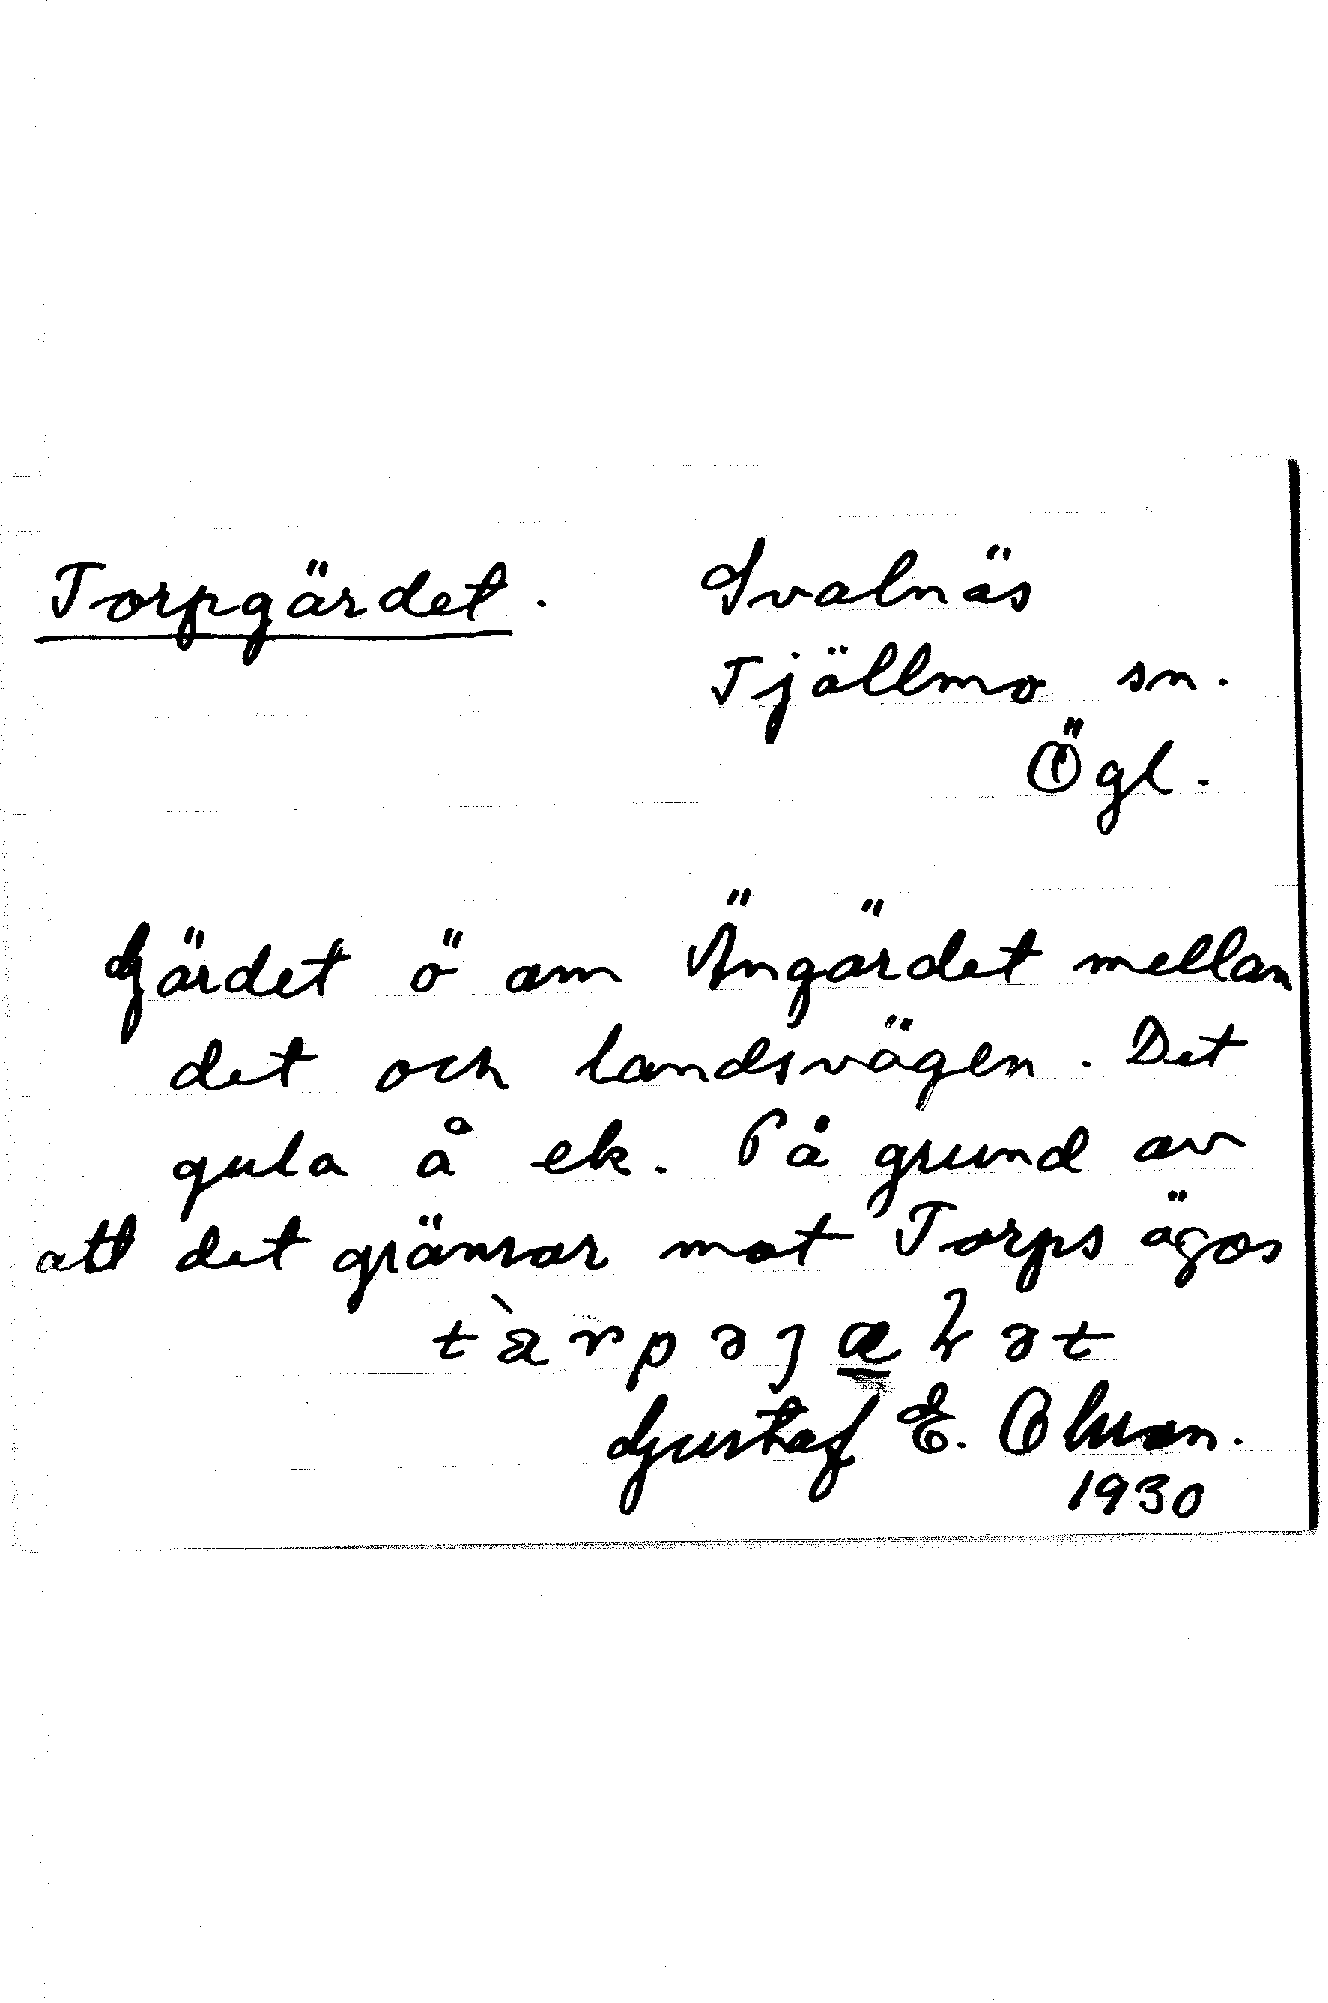 Torpgärdet. Svalnäs
Tjällmo sn.
Ögl.
Gärdet ö om Ängärdet mellan
det och landsvägen. Det
gula å ek. På grund av
att det gränsar mot Torps ägor
Gustaf E. Olson.
1930